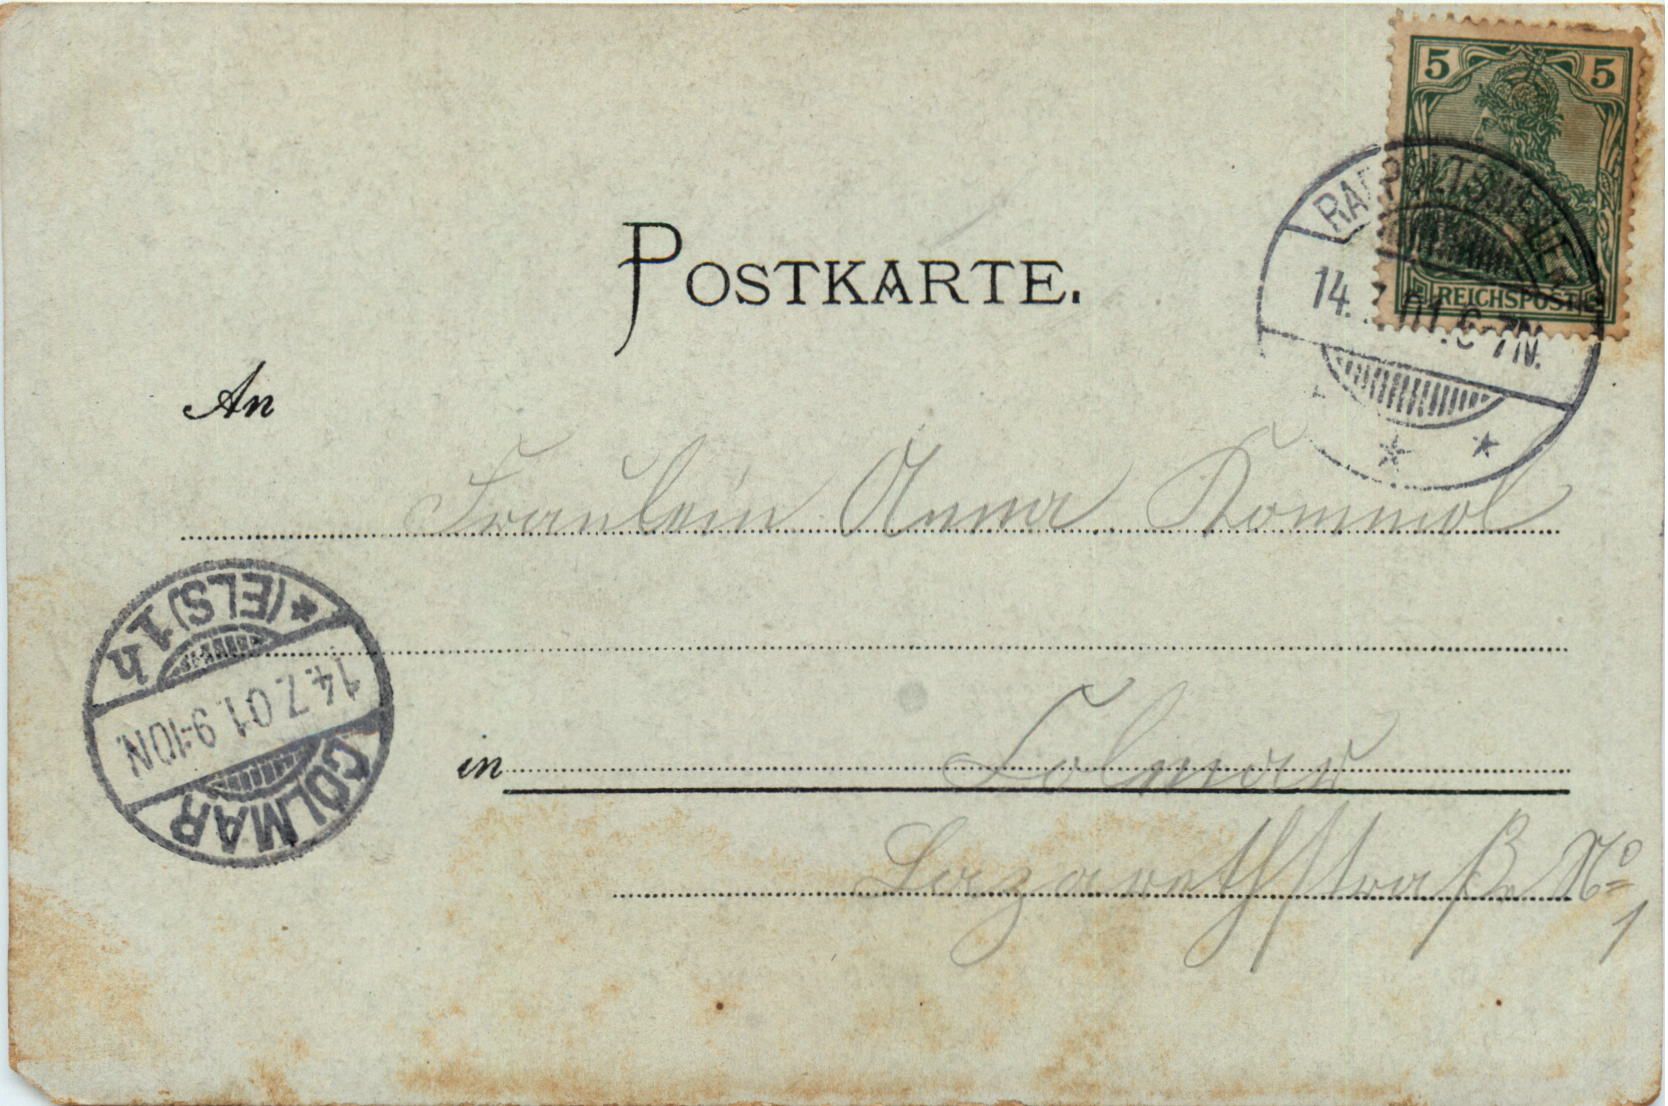 5 5
REICHSPOST
RAPPOLTSWEILER
14.7.01.6-7N.
POSTKARTE.
An
Fräulein Anna
(ELS) 1h
14.7.01.9-10N.
COLMAR
in Colmar
Lazarethstraße No
1